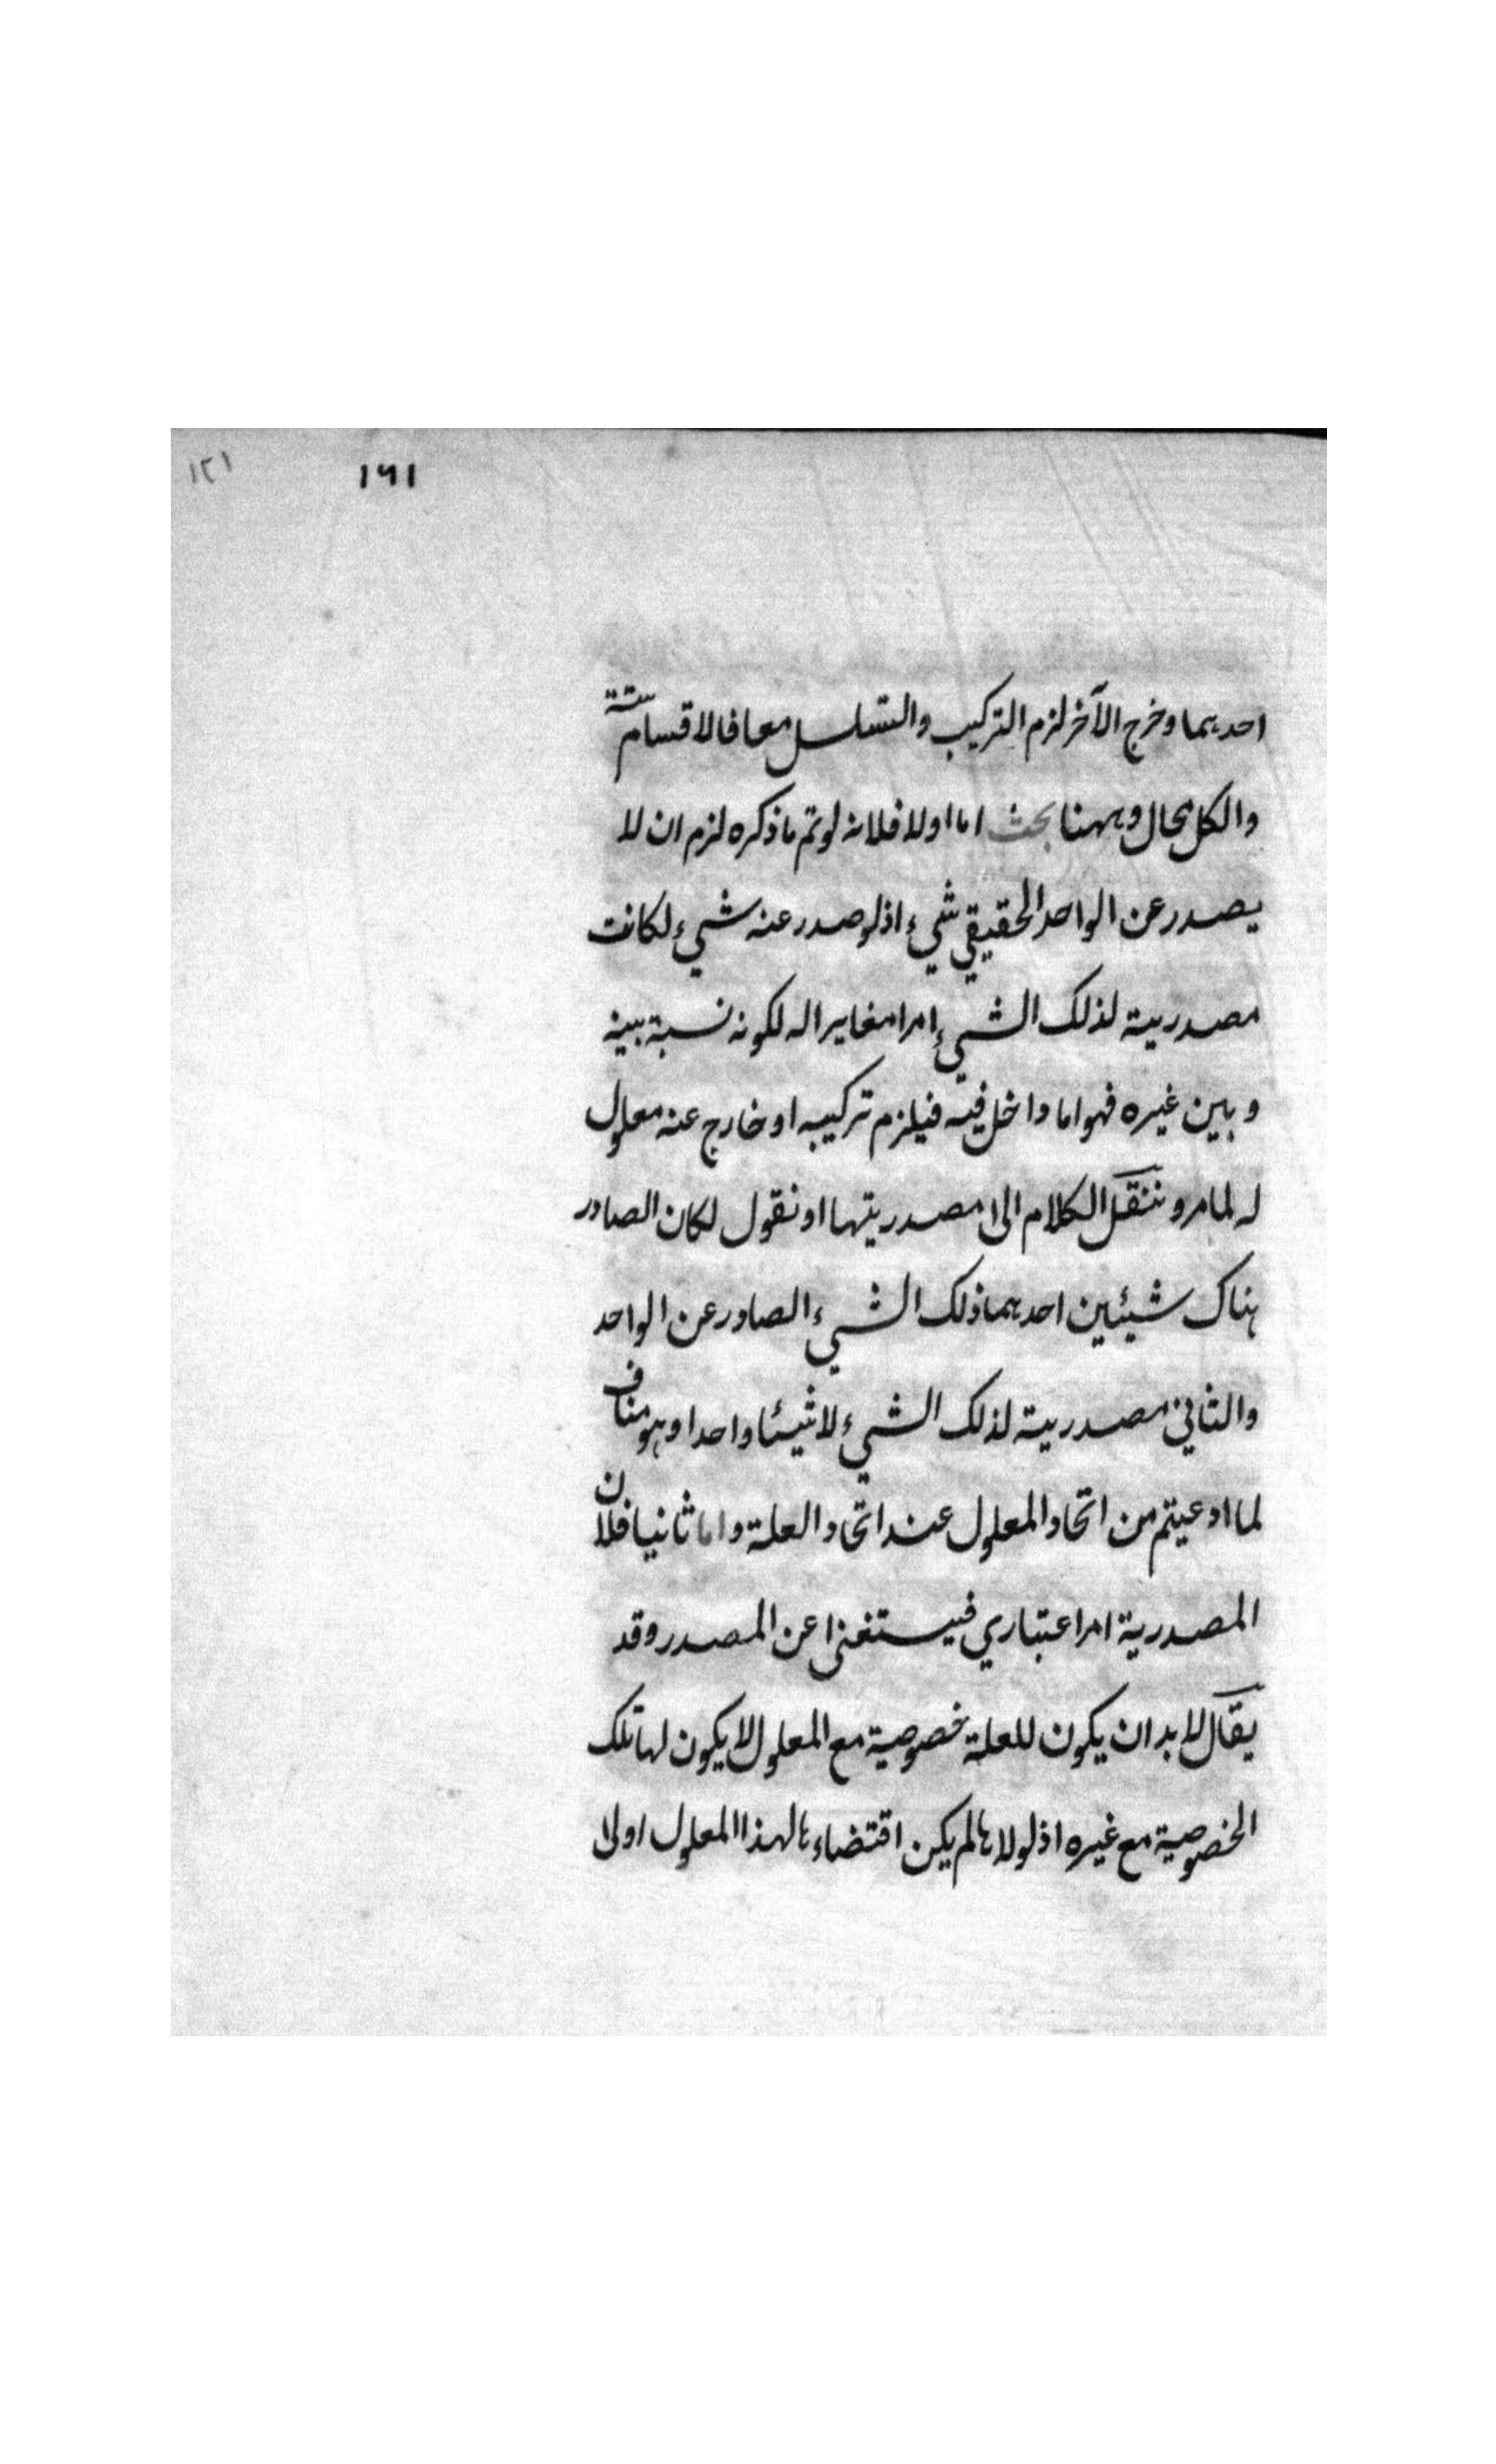 ١٢١ ١٦١
احدهما وخرج الآخر لزم التركيب والتسلسل معا فالاقسام ستة
والكل محال وههنا بحث اما اولا فلانه لو تم ما ذكره لزم ان لا
يصدر عن الواحد الحقيقي شيء اذ لو صدر عنه شيء لكانت
مصدرية لذلك الشيء امرا مغايرا له لكونه نسبة بينه
وبين غيره فهو اما داخل فيه فيلزم تركيبه او خارج عنه معلول
له لما مر وننقل الكلام الى مصدريتها او نقول لكان الصادر
هناك شيئين احدهما ذلك الشيء الصادر عن الواحد
والثاني مصدرية لذلك الشيء لا شيئا واحدا وهو مناف
لما ادعيتم من اتحاد المعلول عند اتحاد العلة واما ثانيا فلان
المصدرية امر اعتباري فيستغنى عن المصدر وقد
يقال لا بد ان يكون للعلة خصوصية مع المعلول لا يكون لها تلك
الخصوصية مع غيره اذ لولاها لم يكن اقتضاءها لهذا المعلول اولى